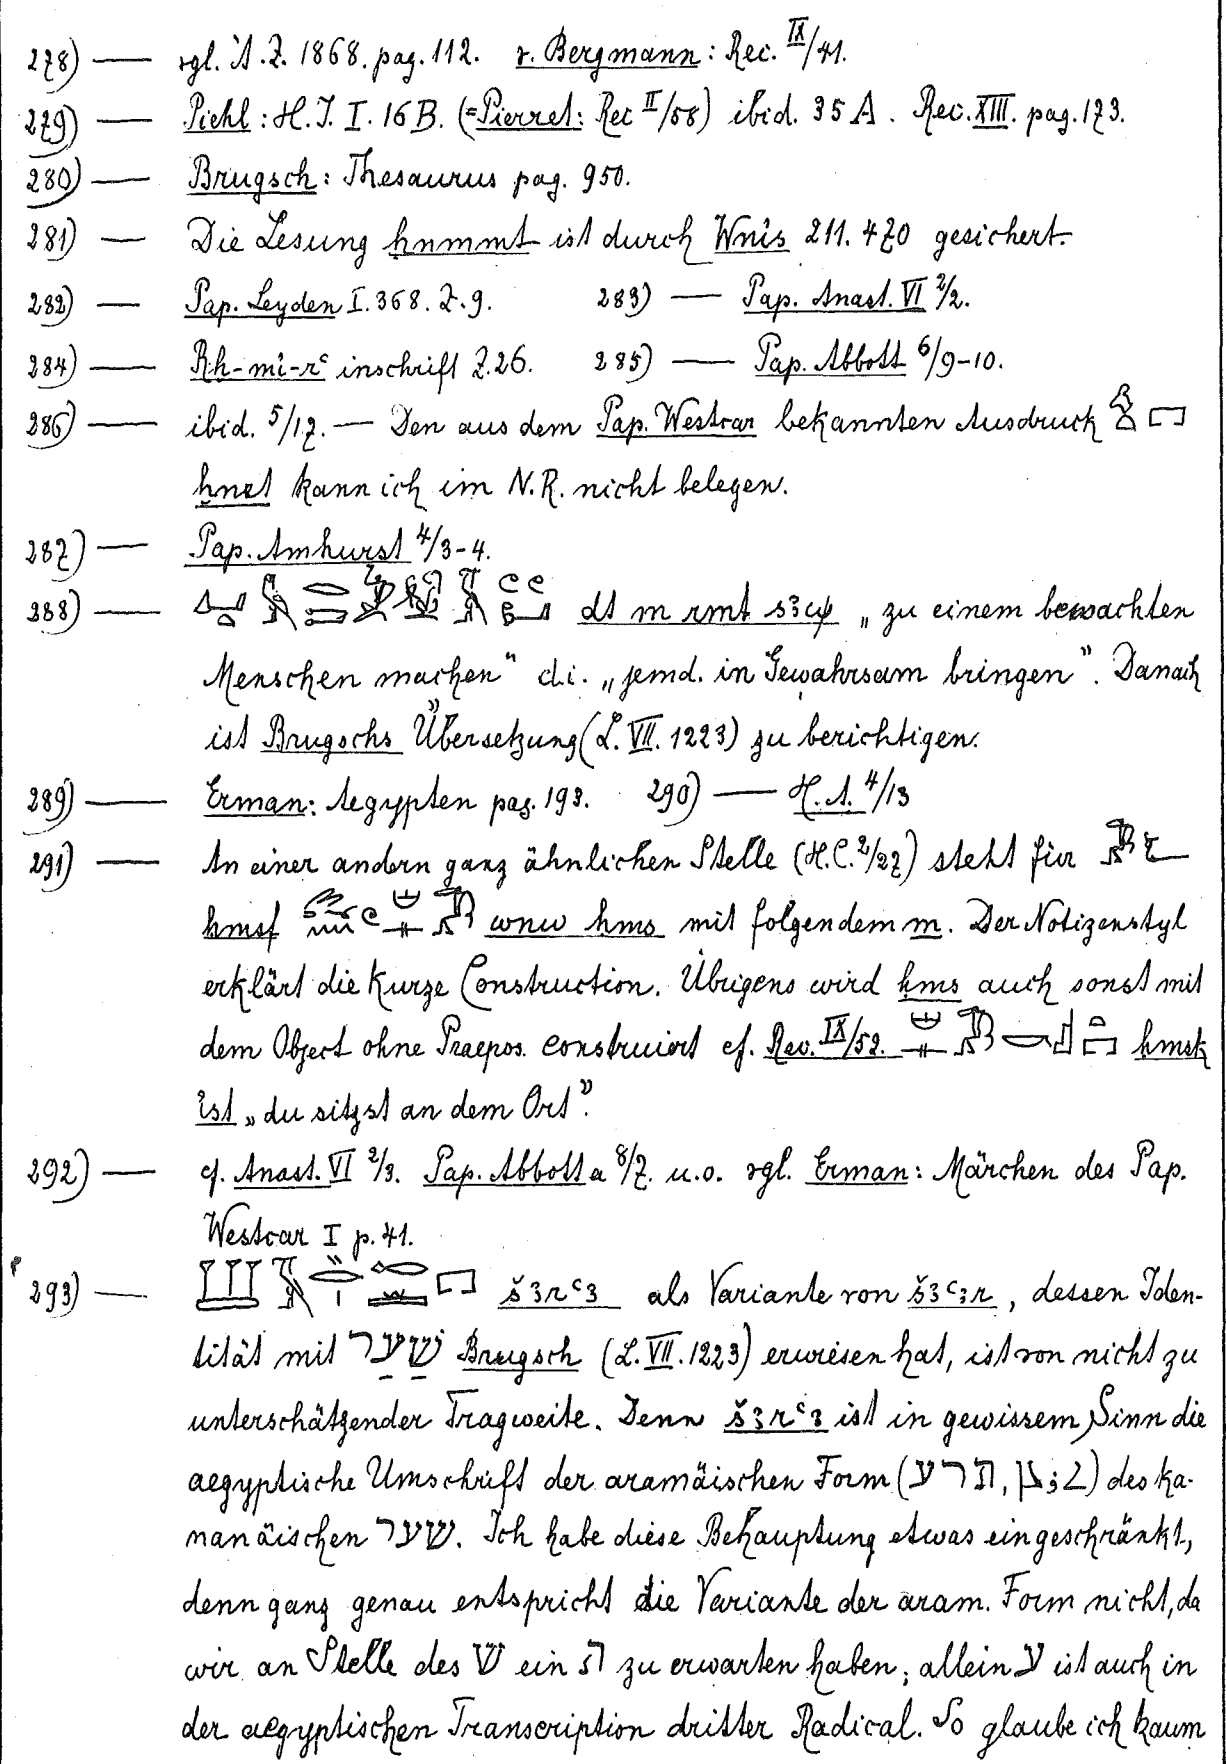 278) — vgl. Ä.Z. 1868. pag. 112. v. Bergmann: Rec. IX/41.
279) — Piehl: H.I. I. 16 B. (=Pierret: Rec II/58) ibid. 35 A. Rec. XIII. pag. 173.
280) — Brugsch: Thesaurus pag. 950.
281) — Die Lesung ḥnmmt ist durch Wnis 211. 470 gesichert.
282) — Pap. Leyden I. 368. Z. 9. 283) — Pap. Anast. VI 2/2.
284) — Rḫ-mi-rꜥ inschrift Z. 26. 285) — Pap. Abbott 6/9-10.
286) — ibid. 5/17. — Den aus dem Pap. Westcar bekannten Ausdruck
ḫnrt kann ich im N.R. nicht belegen.
287) — Pap. Amhurst 4/3-4.
288) — dt m rmt sꜣw „zu einem bewachten
Menschen machen" d.i. „jemd. in Gewahrsam bringen". Danach
ist Brugschs Übersetzung (L. VII. 1223) zu berichtigen.
289) — Erman: Aegypten pag. 193. 290) — H.A. 4/13
291) — An einer andern ganz ähnlichen Stelle (H.C. 2/27) steht für
ḥmsf wnw ḥms mit folgendem m. Der Notizenstyl
erklärt die kurze Construction. Übrigens wird ḥms auch sonst mit
dem Object ohne Praepos. construiert cf. Rec. IX/52. ḥmsk
ist „du sitzst an dem Ort".
292) — cf. Anast. VI 2/3. Pap. Abbott a 8/7. u.o. vgl. Erman: Märchen des Pap.
Westcar I p. 41.
293) — šꜣrꜥꜣ als Variante von šꜣꜥꜣr, dessen Iden-
tität mit שער Brugsch (L. VII. 1223) erwiesen hat, ist von nicht zu
unterschätzender Tragweite. Denn šꜣrꜥꜣ ist in gewissem Sinn die
aegyptische Umschrift der aramäischen Form (תרע, ܬܪܥ) des ka-
nanäischen שער. Ich habe diese Behauptung etwas eingeschränkt,
denn ganz genau entspricht die Variante der aram. Form nicht, da
wir an Stelle des ש ein ת zu erwarten haben; allein ע ist auch in
der aegyptischen Transcription dritter Radical. So glaube ich kaum